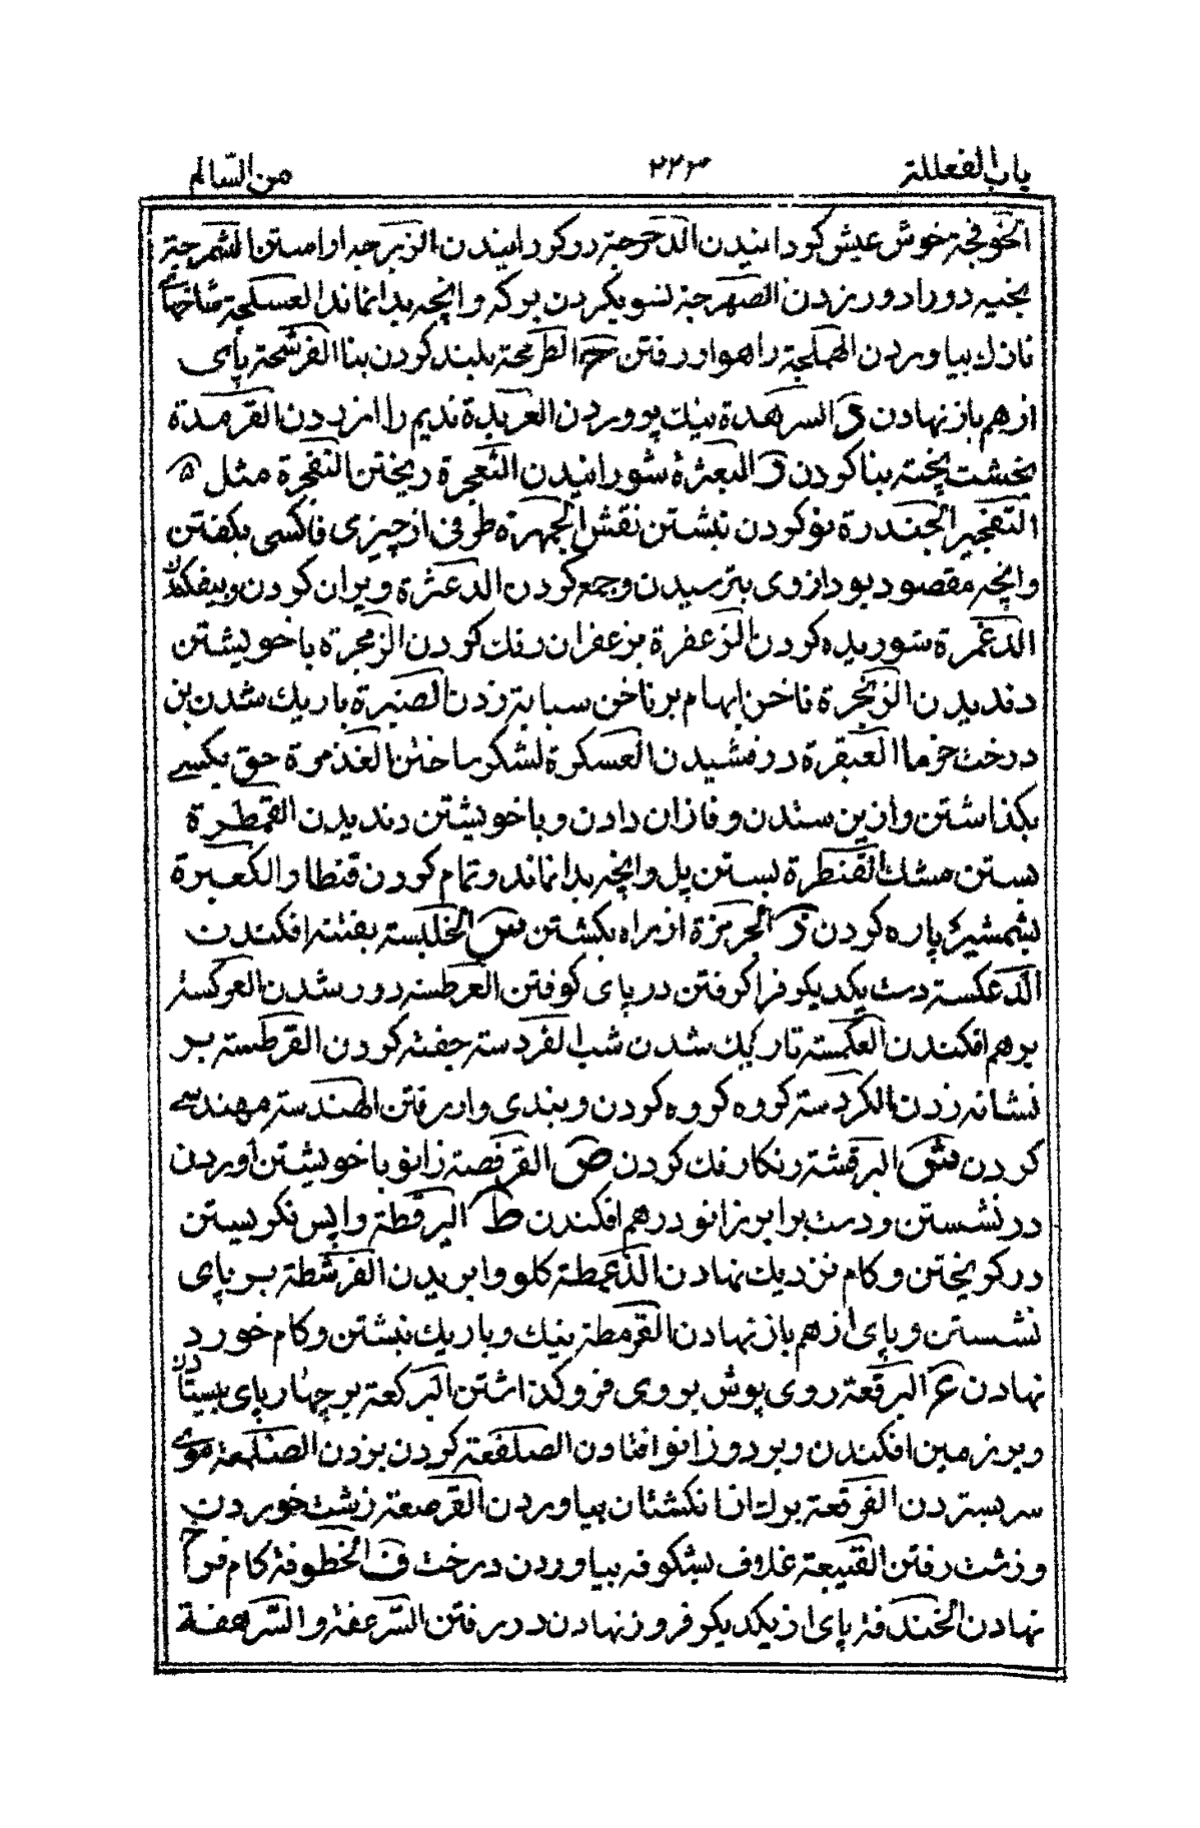 باب الفعللة ۲۲۳ من السّالم
الخرفجة خوش عیش کردانیدن الدحرجة در کردانیدن الزبرجة اراستن الشمرجة
بخیه دورادور زدن الصهرجة نسو بکردن برکه وانچه بدانماند العسلجة شاخهای
نازك بیاوردن الهملجة راهوار رفتن ح الطرمحة بلند کردن بنا الفرشحة پای
از هم باز نهادن د السرهدة نیك پروردن العربدة ندیم را ازردن القرمدة
بخشت پخته بنا کردن ر البعثرة شورانیدن الثعجرة ریختن التفجرة مثل
التفجیر الجندرة نو کردن نبشتن نقش الجمهرة طرفی از چیزی فاکسی بکفتن
وانچه مقصود بود ازوی بترسیدن وجمع کردن الدعثرة ویران کردن وبیفکندن
الدغمرة شوریده کردن الزعفرة بزعفران رنك کردن الزمجرة باخویشتن
دندیدن الزنجرة ناخن ابهام بر ناخن سبابه زدن الصنبرة باریك شدن بن
درخت خرما العبقرة درفشیدن العسکرة لشکر ساختن الغذمرة حق یکسی
بکذاشتن وازین ستدن وفازان دادن وباخویشتن دندیدن القمطرة
بستن مشك القنطرة بستن پل وانچه بدانماند وتمام کردن قنطار الکعبرة
بشمشیر پاره کردن ز الجرمزة از راه بکشتن س الخلبسة بفتنه افکندن
الدعکسة دست یکدیکر فرا کرفتن در پای کوفتن العرطسة دور شدن العرکسة
برهم افکندن العکمسة تاریك شدن شب الفردسة جفته کردن القرطسة بر
نشانه زدن الکردسة کروه کروه کردن وبندی وار رفتن الهندسة مهندسی
کردن ش البرقشة رنکارنك کردن ص القرفصة زانو باخویشتن اوردن
در نشستن ودست برابر زانو درهم افکندن ط البرقطة واپس نکریستن
در کریختن وکام نزدیك نهادن الذعمطة کلو وابریدن الفرشطة بر پای
نشستن وپای از هم باز نهادن القرمطة نیك وباریك نبشتن وکام خورد
نهادن ع البرقعة روی پوش بروی فروکذاشتن البرکعة بر چهار پای بیستادن
وبر زمین افکندن وبر دو زانو افتادن الصلفعة کردن بزدن الصلمعة موی
سر بستردن الفرقعة برك از انکشتان بیاوردن القرصعة زشت خوردن
وزشت رفتن القنبعة غلاف بشکوفه بیاوردن درخت ف الخطرفة کام فراخ
نهادن الخندفة پای از یکدیکر فروز نهادن در رفتن السرعفة والسرهفة